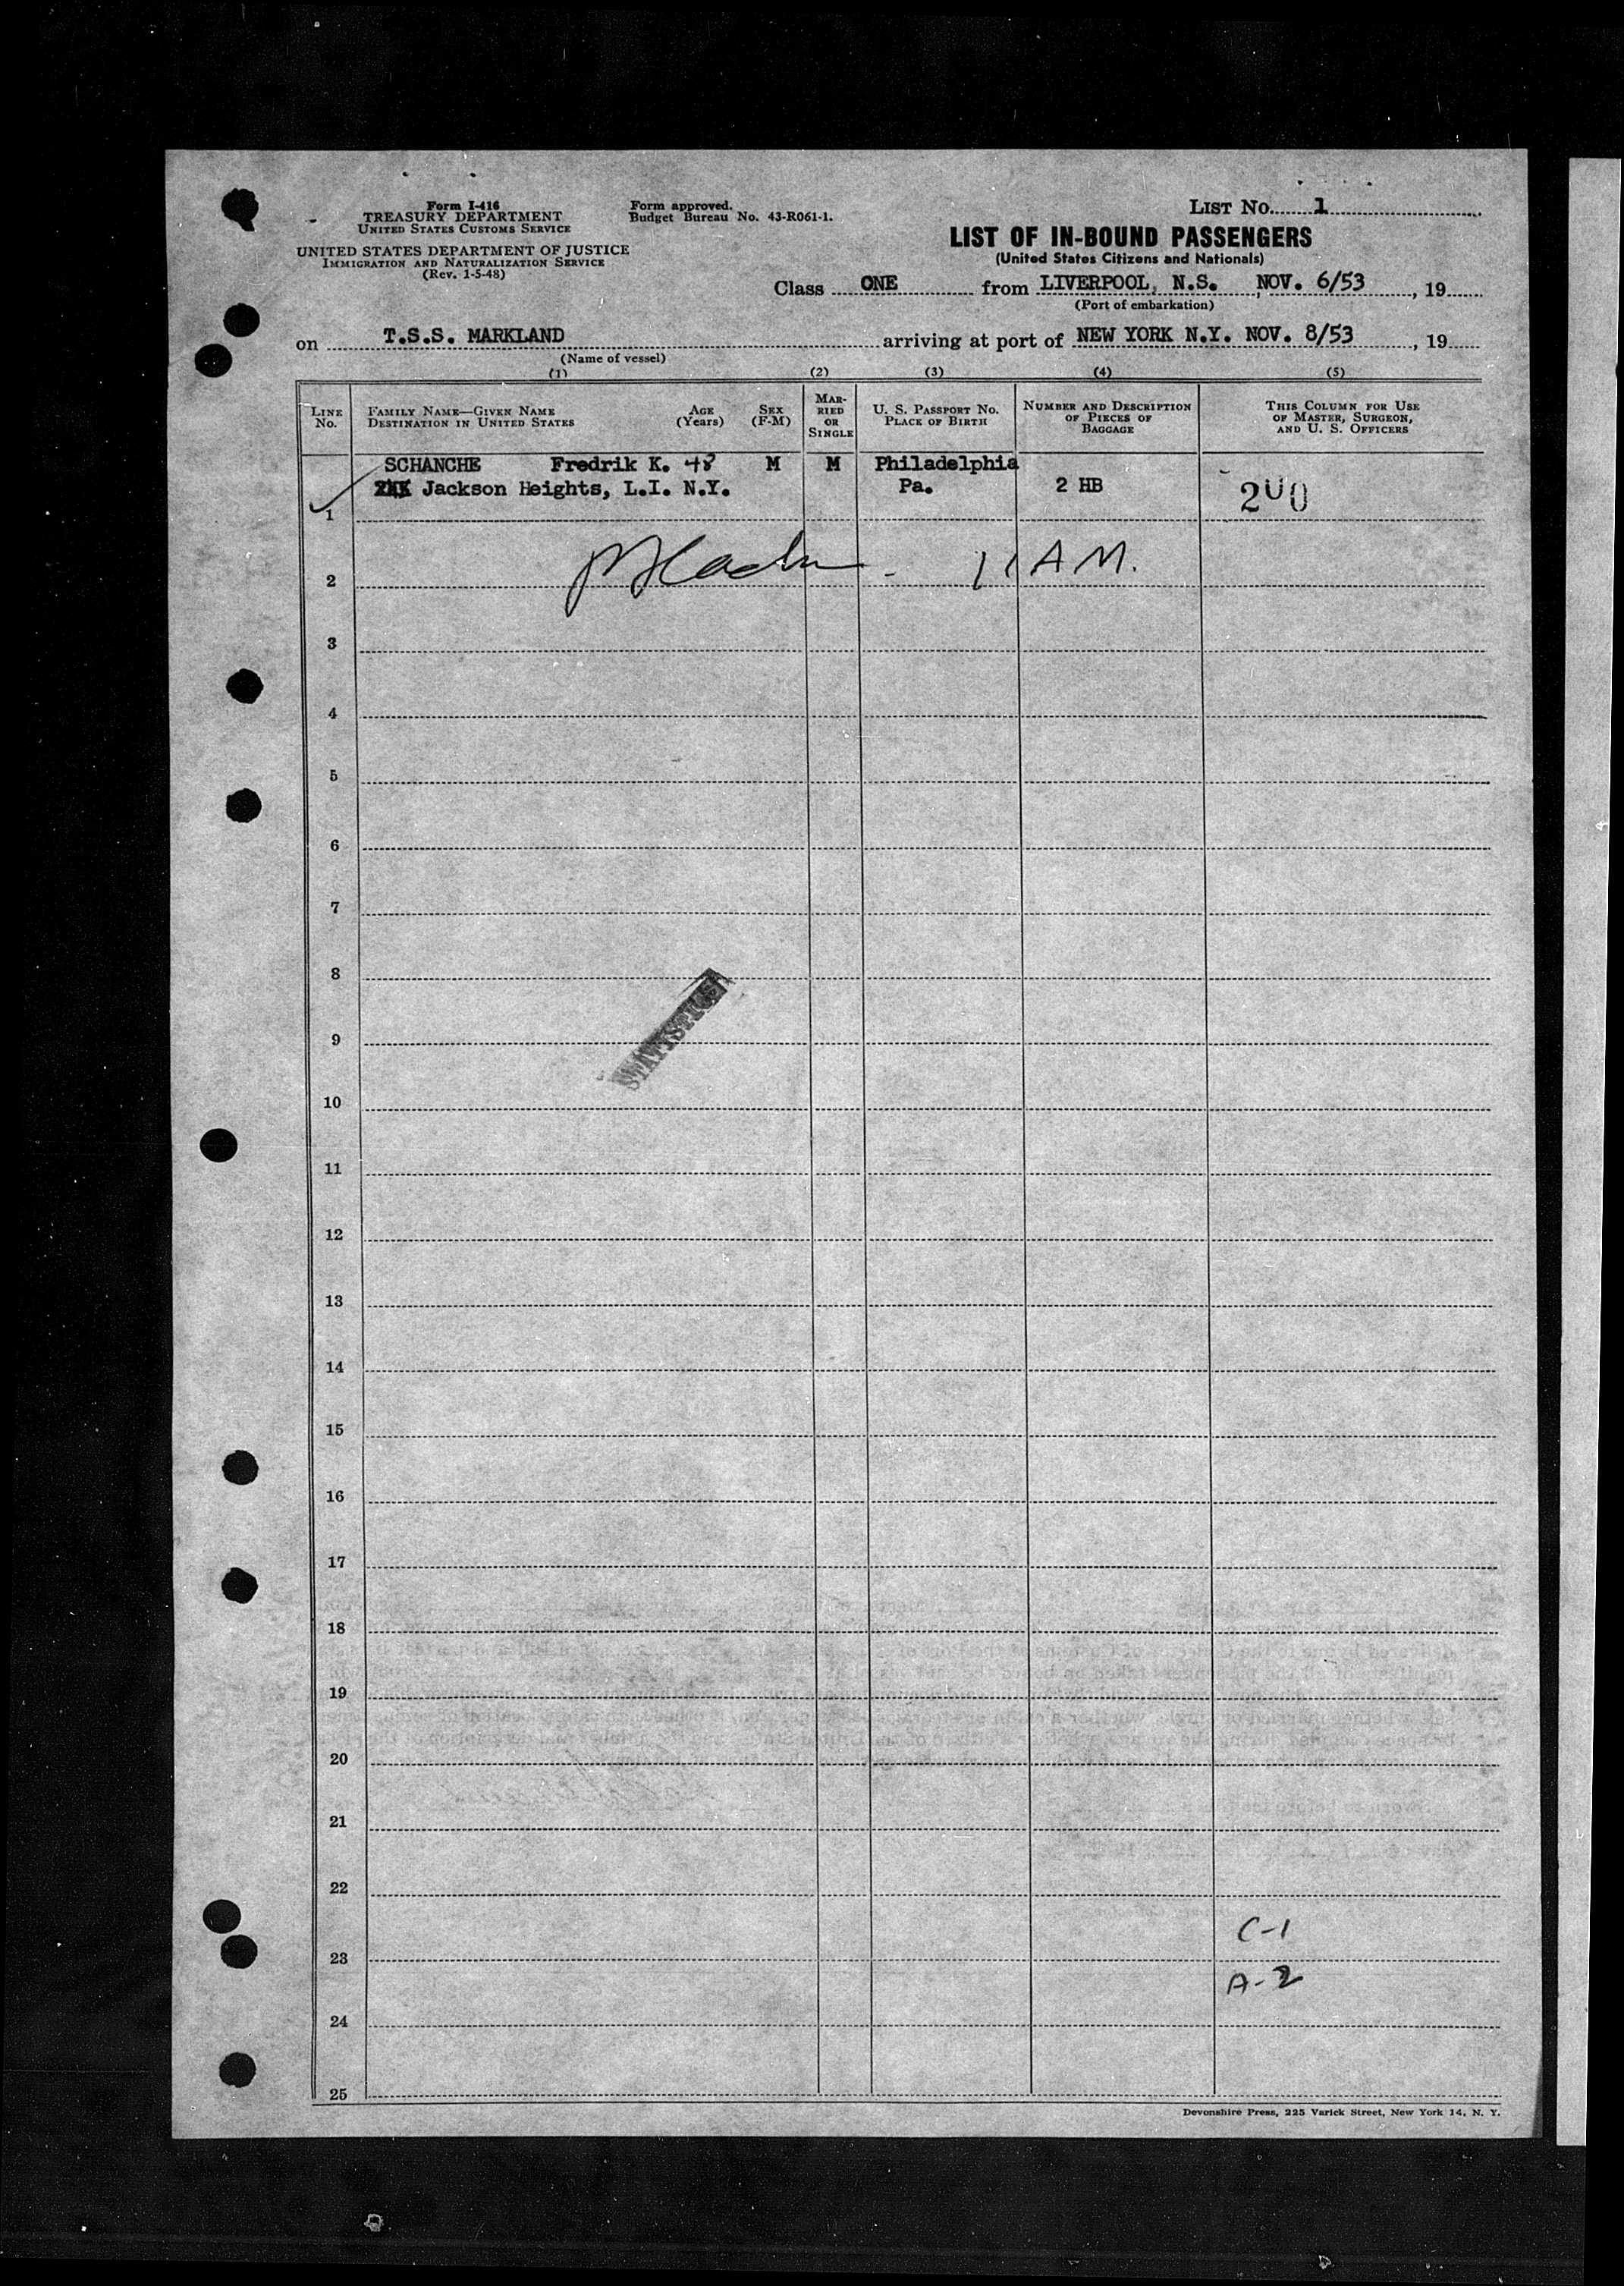 Form I-416
TREASURY DEPARTMENT
UNITED STATES CUSTOMS SERVICE
UNITED STATES DEPARTMENT OF JUSTICE
IMMIGRATION AND NATURALIZATION SERVICE
(Rev. 1-5-48)
Form approved.
Budget Bureau No. 43-R061-1.
LIST No. 1
LIST OF IN-BOUND PASSENGERS
(United States Citizens and Nationals)
Class ONE from LIVERPOOL, N.S. , NOV. 6/53 , 19
(Port of embarkation)
on T.S.S. MARKLAND arriving at port of NEW YORK N.Y. NOV. 8/53 , 19
(Name of vessel)
(1) (2) (3) (4) (5)
LINE No.
FAMILY NAME—GIVEN NAME
DESTINATION IN UNITED STATES
AGE (Years)
SEX (F-M)
MARRIED OR SINGLE
U. S. PASSPORT NO.
PLACE OF BIRTH
NUMBER AND DESCRIPTION OF PIECES OF BAGGAGE
THIS COLUMN FOR USE OF MASTER, SURGEON, AND U. S. OFFICERS
SCHANCHE Fredrik K. 48 M M Philadelphia
Jackson Heights, L.I. N.Y. Pa. 2 HB 200
1
2 - 11 A M.
3
4
5
6
7
8
STATISTICS
9
10
11
12
13
14
15
16
17
18
19
20
21
22
C-1
23
A-2
24
25
Devonshire Press, 225 Varick Street, New York 14, N. Y.